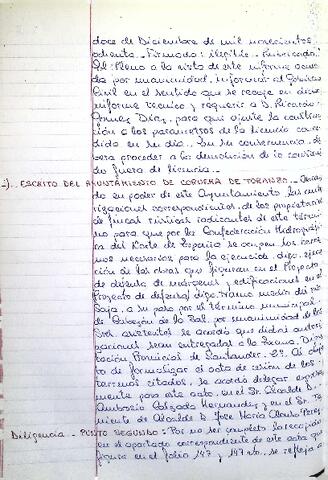 doce de Diciembre de mil novecientos
ochenta. Firmado: ilegible. Rubricado.
El Pleno a la vista de este informe acuer
da por unanimidad, informar al Gobierno
Civil en el sentido que se recoge en dicho
informe técnico y requerir a D. Ricardo
Gómez Díaz, para que ajuste la construc
ción a los parametros de la licencia conce
dida en su día. En su consecuencia, de
bera proceder a la demolición de lo construi
do fuera de licencia.
ESCRITO DEL AYUNTAMIENTO DE CORVERA DE TORANZO.
do en poder de este Ayuntamiento, las auto
rizaciones correspondientes, de los propietarios
de fincas rústicas radicantes de este térmi
no para que por la Confederación Hidrográfi
ca del Norte de España se ocupen los terre
nos necesarios para la ejecución, digo, ejecu
ción de las obras que figuran en el Proyecto
de defensa de márgenes y edificaciones en el
Proyecto de defensa, digo, tramo medio del río
Saja, a su paso por el término municipal
de Cabezón de la Sal, por unanimidad de los
Sres. asistentes se acordó que dichas autori
zaciones sean entregadas a la Excma. Dipu
tación Provincial de Santander. 2º. Al obje
to de formalizar el acto de cesión de los
terrenos citados, se acordó delegar expresa
mente para este acto, en el Sr. Alcalde D.
Ambrosio Calzada Hernández y en el Sr. Te
niente de Alcalde D. José María
Diligencia. - PUNTO SEGUNDO: Por no ser completa la recogida
en el apartado correspondiente de este acta que
figura en el folio 147 y 147 vto. se refleja a